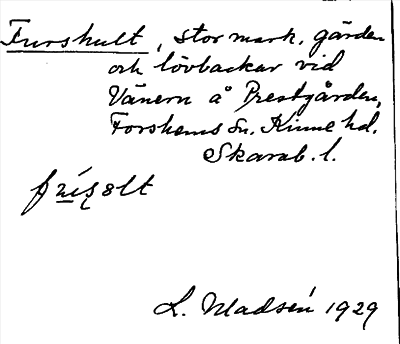 Furskult, stor mark, gärden
och lövbackar vid
Vänern å Prestgården,
Forshems sn. Kinne hd.
Skarab. l.
L. Madsén 1929